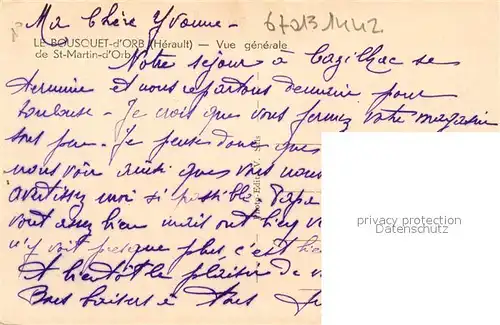 Ma Chère Yvonne -
67213 1442
LE BOUSQUET-d'ORB (Hérault) — Vue générale
de St-Martin-d'Orb
Notre séjour à Cazilhac se
termine et nous repartons demain pour
Toulouse - Je crois que vous fermez votre magasin
sous peu - Je pense donc que
nous voir ainsi que vous nous
avertissez moi si possible Papa
vont assez bien mais ont
n'y voit presque plus, c'est
A bientôt le plaisir de
Bons baisers à Tous
Photo-Edit. V.
privacy protection
Datenschutz